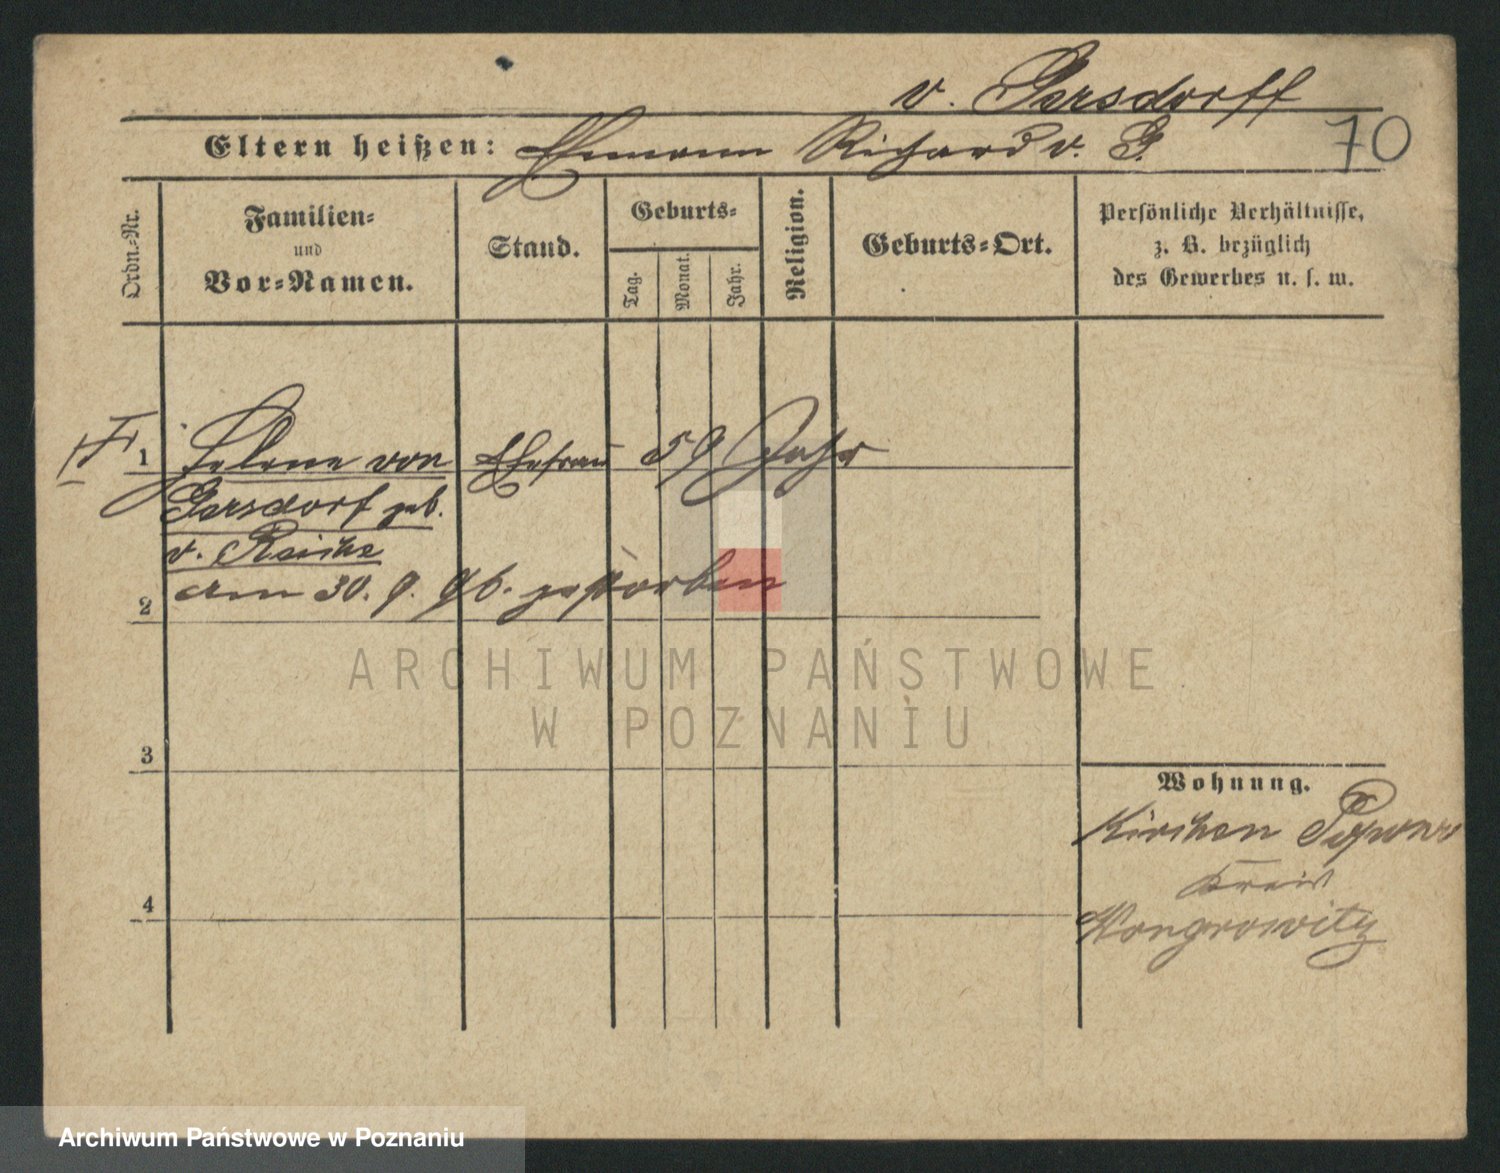 v. Gersdorff
Eltern heißen: Ehemann Richard v. G.
70
Ordn.-Nr.
Familien-
und
Vor-Namen.
Stand.
Geburts-
Tag.
Monat.
Jahr.
Religion.
Geburts-Ort.
Persönliche Verhältnisse,
z. B. bezüglich
des Gewerbes u. s. w.
1 Helene von Ehefrau 59 Jahr
Gersdorf geb.
v. Reiche
am 30. 9. 96. gestorben
2
3
4
Wohnung.
Kirchen Popowo
Kreis
Wongrowitz
ARCHIWUM PAŃSTWOWE
W POZNANIU
Archiwum Państwowe w Poznaniu